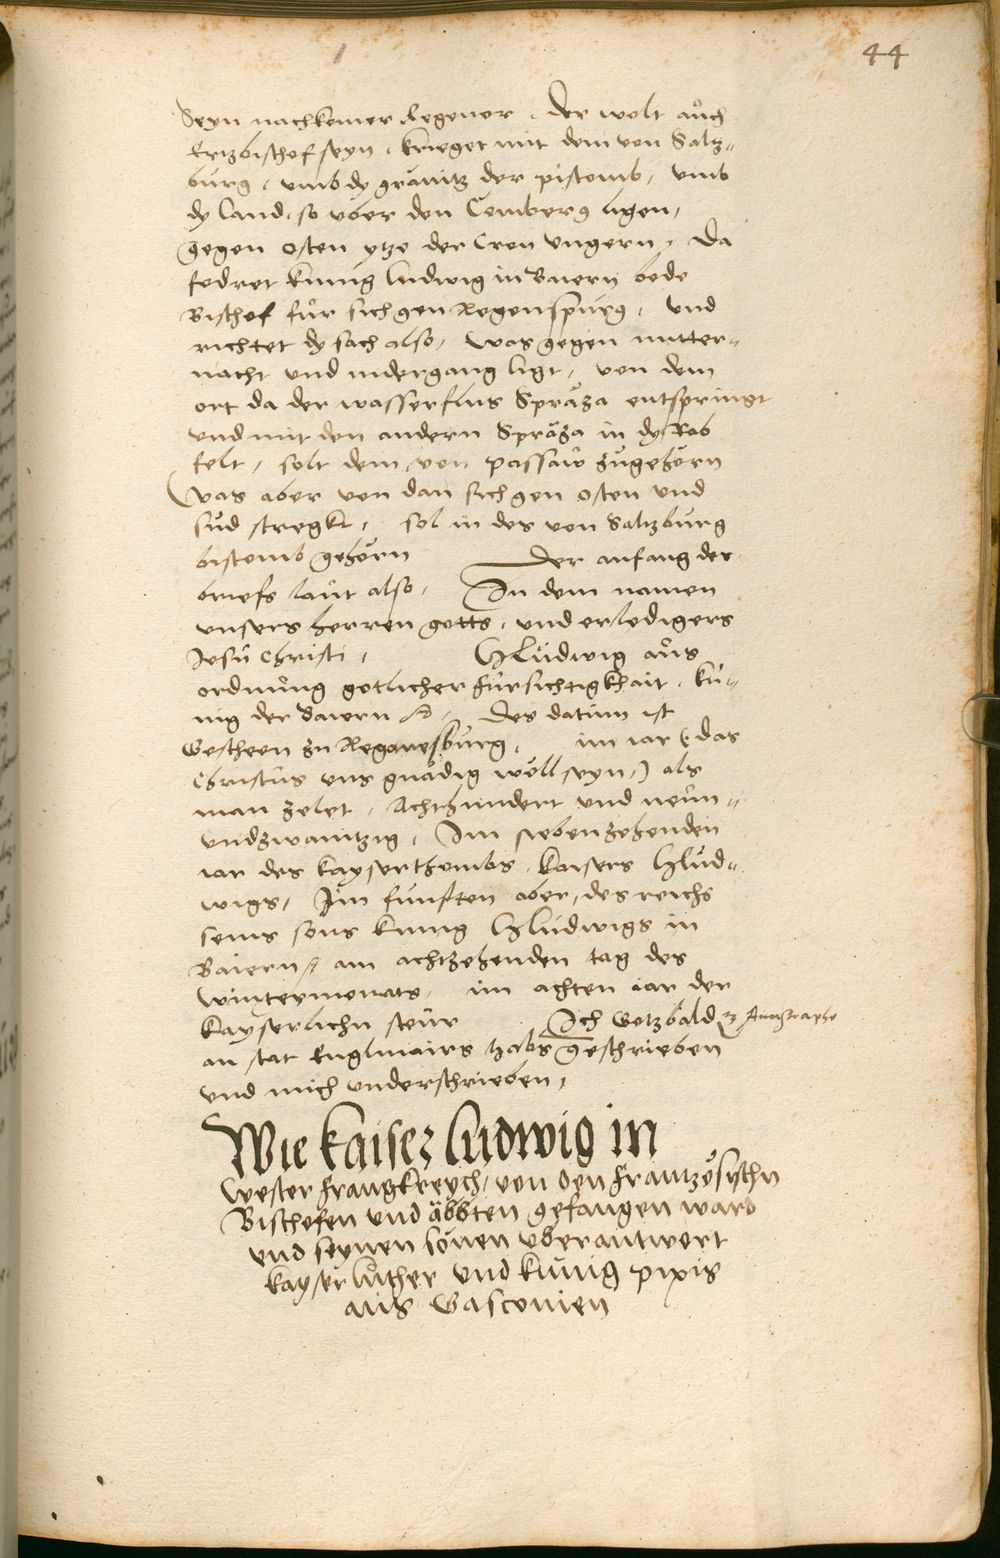 44
Seyn nachkomer Regener, der wolt aůch
Ertzbischof seyn, krieget mit dem von Saltz„
burg, umb dy gränitz der pistomb, umb
dy Land, so vber den Cemberg ligen,
gegen osten ytzo der Cron Ungern, Da
fodret kunig Ludwig in Baiern bede
Bischof fůr sich gen Regenspurg, und
richtet dy sach also, Was gegen mitter„
nacht und nidergang ligt, von dem
ort da der wasserflus Spräza entspringt
und mit den andern Spräza in dy Rab
felt, solt dem von passaw zugehörn
Was aber von dan sich gen osten und
sůd stregkt, sol in des von Saltzburg
bistomb gehörn Der anfang des
briefs laut also, In dem namen
unsers herren gotts, und erledigers
Jesu Christi, Hludwig aůs
ordnung gotlicher fursichtigkhait, ku„
nig der Baiern Des datum ist
Gescheen zu Reganesburg, im iar (das
Christus uns gnädig wöll seyn,) als
man zelet, Achthundert und neun„
undzwaintzig, Im siebenzehenden
iar des kayserthombs, kaisers Hlud„
wigs, Im funften aber, des reichs
seins sons kunig Hludwigs in
Baiern, am achtzehenden tag des
wintermonats, im achten iar der
kayserlichn steur Ich Gotzbald
an stat Englmairs habs geschrieben
und mich underschrieben,
Wie kaiser ludwig in
wester frangkreych, von den frantzösischn
Bischofen und äbbten gefangen ward
und seynen sönen uberantwort
kayser luther und kunig pipis
aus Gasconien